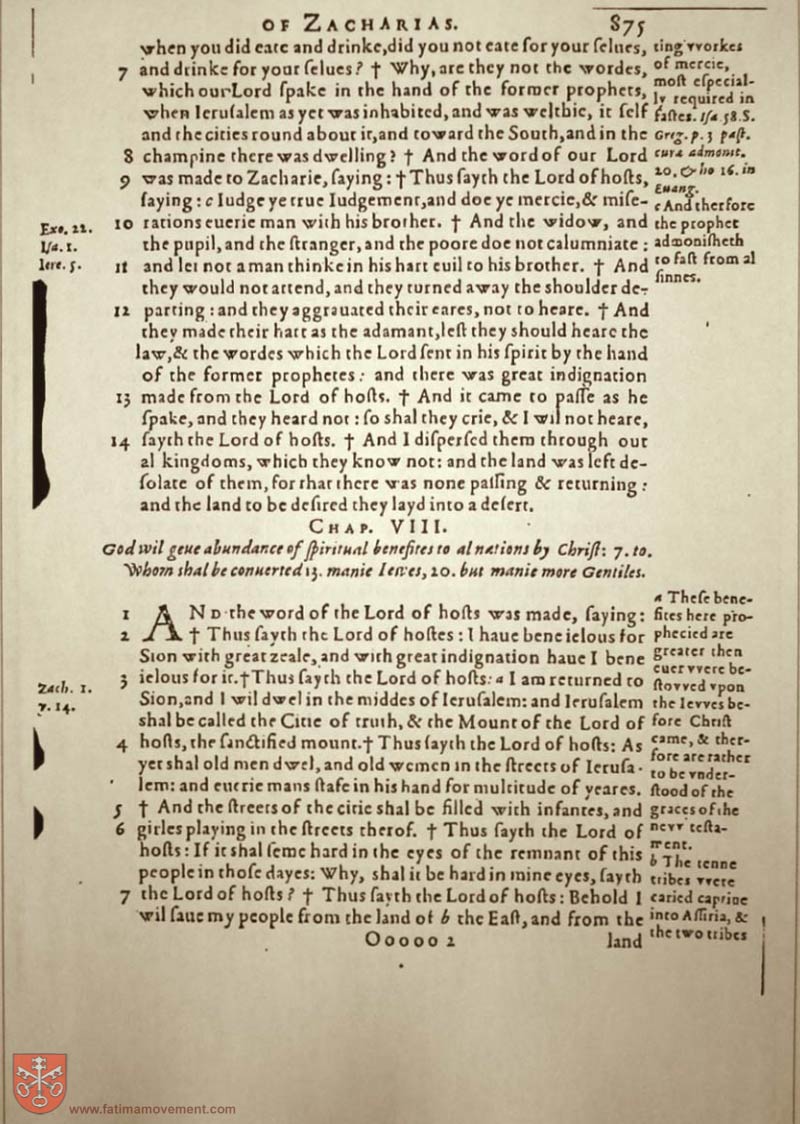 OF ZACHARIAS. 875
when you did eate and drinke, did you not eate for your ſelues,
7 and drinke for your ſelues? † Why, are they not the wordes,
which our Lord ſpake in the hand of the former prophets,
when Ieruſalem as yet was inhabited, and was welthie, it ſelf
and the cities round about it, and toward the South, and in the
8 champine there was dwelling? † And the word of our Lord
9 was made to Zacharie, ſaying: † Thus ſayth the Lord of hoſts,
ſaying: c Iudge ye true Iudgement, and doe ye mercie, & miſe-
10 rations euerie man with his brother. † And the widow, and
the pupil, and the ſtranger, and the poore doe not calumniate:
11 and let not a man thinke in his hart euil to his brother. † And
they would not attend, and they turned away the shoulder de-
12 parting: and they aggrauated their eares, not to heare. † And
they made their hart as the adamant, leſt they should heare the
law, & the wordes which the Lord ſent in his ſpirit by the hand
of the former prophetes: and there was great indignation
13 made from the Lord of hoſts. † And it came to paſſe as he
ſpake, and they heard not: ſo shal they crie, & I wil not heare,
14 ſayth the Lord of hoſts. † And I diſperſed them through out
al kingdoms, which they know not: and the land was left de-
ſolate of them, for that there was none paſſing & returning:
and the land to be deſired they layd into a deſert.
ting workes
of mercie,
moſt eſpecial-
ly required in
faſtes. Iſa 58. S.
Greg. p. 3 paſt.
cura admonit.
20. & ho 16. in
Euang.
c And therfore
the prophet
admoniſheth
to faſt from al
ſinnes.
Exo. 22.
Iſa. 1.
Iere. 5.
CHAP. VIII.
God wil geue abundance of ſpiritual benefites to al nations by Chriſt: 7. to.
Whom shal be conuerted 13. manie Iewes, 20. but manie more Gentiles.
1 AND the word of the Lord of hoſts was made, ſaying:
2 † Thus ſayth the Lord of hoſtes: I haue bene ielous for
Sion with great zeale, and with great indignation haue I bene
3 ielous for it. † Thus ſayth the Lord of hoſts: a I am returned to
Sion, and I wil dwel in the middes of Ieruſalem: and Ieruſalem
shal be called the Citie of truth, & the Mount of the Lord of
4 hoſts, the ſanctified mount. † Thus ſayth the Lord of hoſts: As
yet shal old men dwel, and old wemen in the ſtreets of Ieruſa-
lem: and euerie mans ſtafe in his hand for multitude of yeares.
5 † And the ſtreets of the citie shal be filled with infantes, and
6 girles playing in the ſtreets therof. † Thus ſayth the Lord of
hoſts: If it shal ſeme hard in the eyes of the remnant of this
people in thoſe dayes: Why, shal it be hard in mine eyes, ſayth
7 the Lord of hoſts? † Thus ſayth the Lord of hoſts: Behold I
wil ſaue my people from the land of b the Eaſt, and from the
OOOOO 2 land
a Theſe bene-
fites here pro-
phecied are
greater then
euer were be-
ſtowed vpon
the Iewes be-
fore Chriſt
came, & ther-
fore are rather
to be vnder-
ſtood of the
graces of the
new teſta-
ment.
b The tenne
tribes were
caried captiue
into Aſſiria, &
the two tribes
Zach. 1.
v. 14.
www.fatimamovement.com